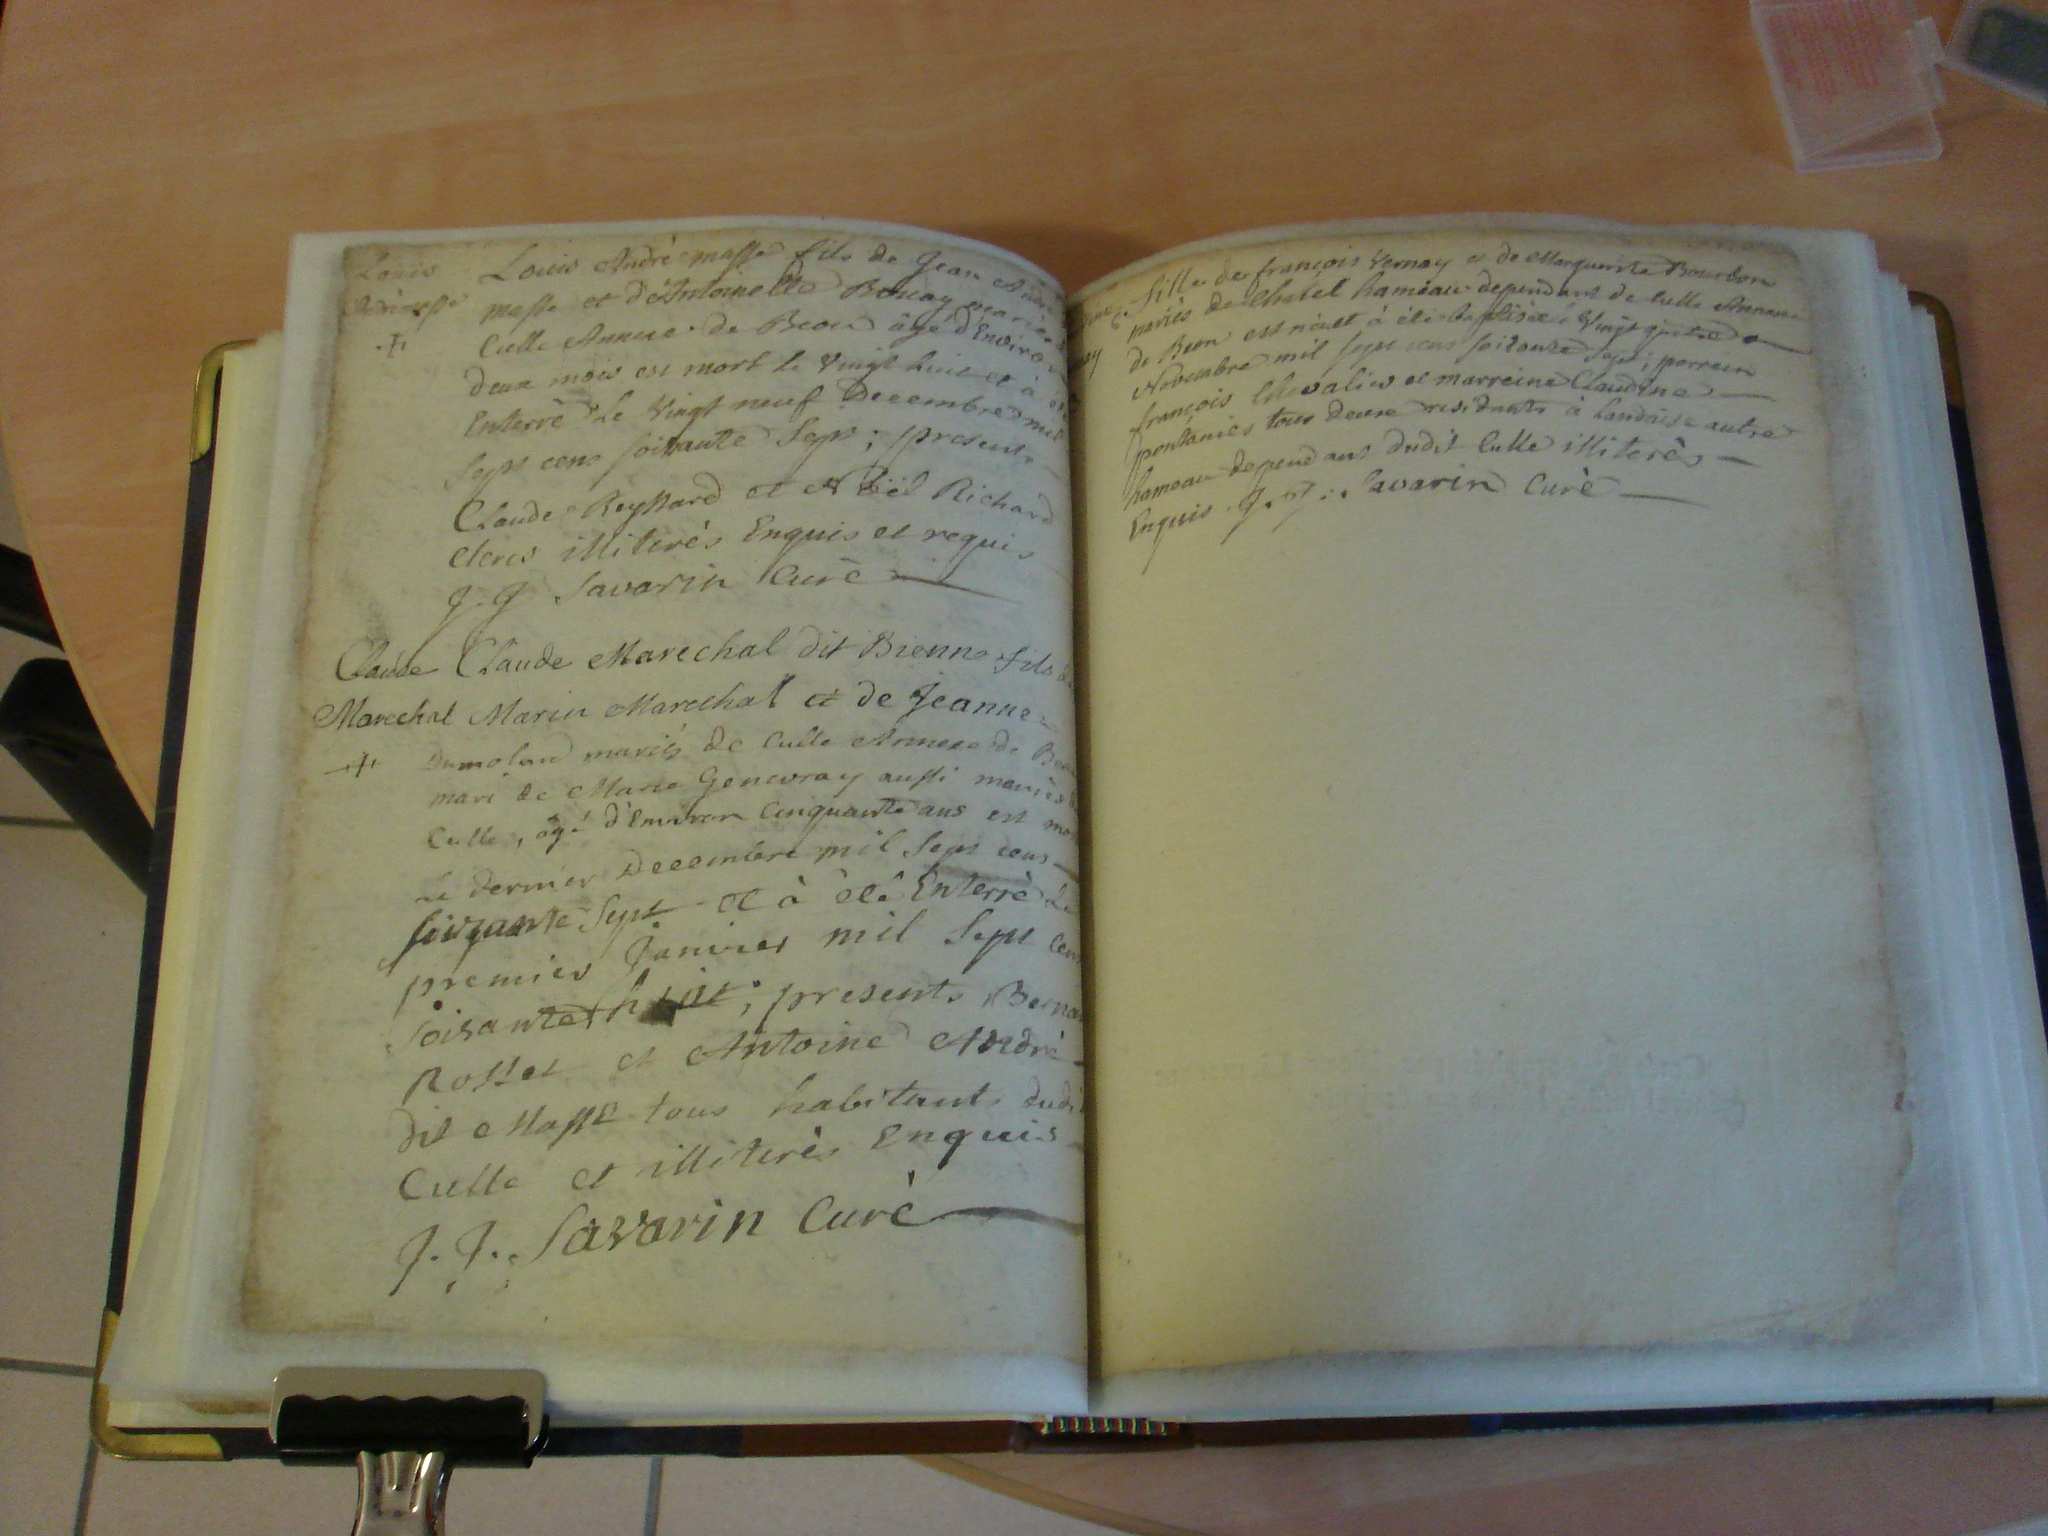 Louis
Louis Andrè masse fils de Jean André
masse et d'Antoinette Bouay mariés
Culle Annexe de Beon âgé d'Enviro
deux mois est mort le Vingt huit et à eté
Enterrè le Vingt neuf Decembre mil
Sept cens soixante Sept; presents
Claude Reyssard et Noël Richard
clercs illiterès Enquis et requis
J. J Savarin Curè
Claude
Marechal
Claude Marechal dit Bienne fils de
Marin Marechal et de Jeanne
Dumolan mariés de Culle Annexe de Beon
mari de Marie Genevray aussi mariès
Culle, âgé d'Environ Cinquante ans est mo
le dernier Decembre mil Sept cens
soixante Sept et à èté Enterrè Le
premier Janvier mil Sept Cens
soixante huit; presents Berna
Rosset et Antoine Andrè
dit Masse tous habitants dudi
Culle et illiterès Enquis
J. J. Savarin Curè
fille de françois Vernay et de Marguerite Bourdon
mariès de Chatel hameau dependant de Culle Annexe
de Beon est nèe et à étè baptisèe le Vingt quatre
Novembre mil Sept cens soixante Sept; parrein
françois Chevalier et marreine Claudine
pontanier tous deux residants à Landaise autre
hameau dependant dudit Culle illiterès
Enquis. J. J. Savarin Curè